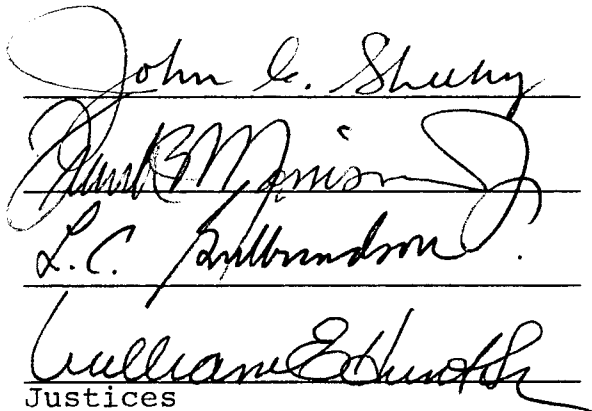 John C. Sheehy
Frank B. Morrison Jr.
L. C. Gulbrandson.
William E. Hunt, Sr.
Justices